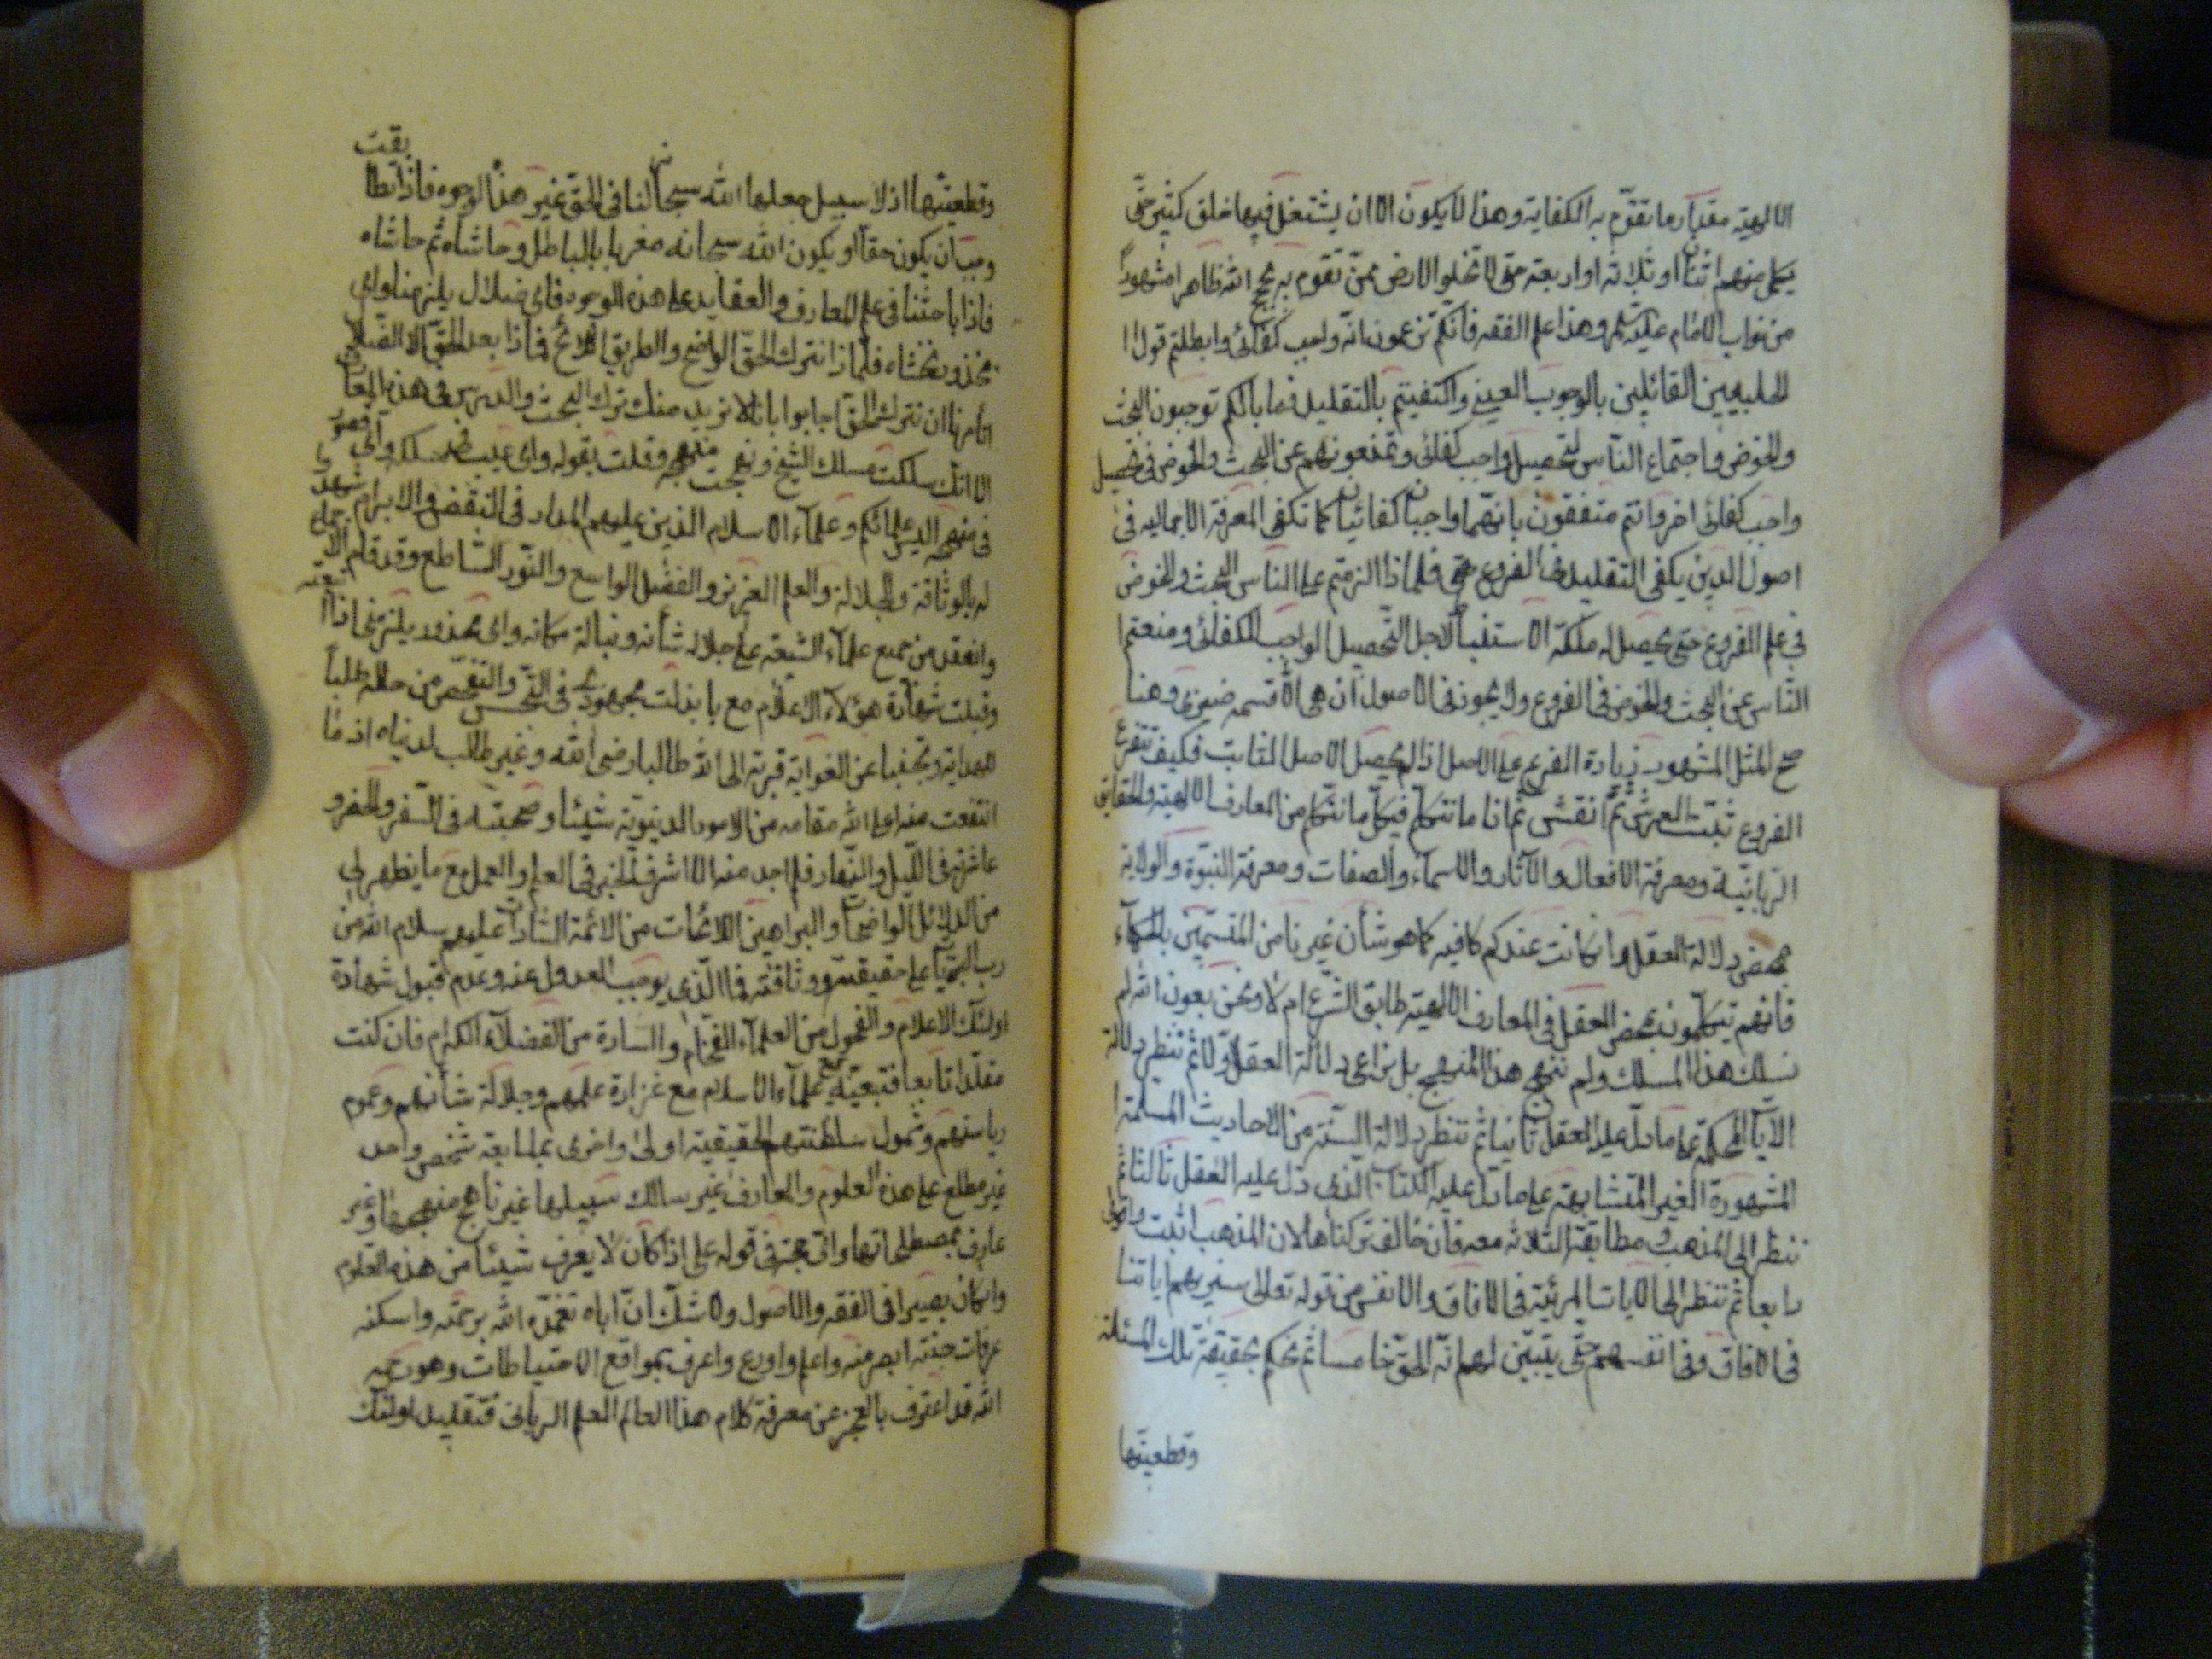 الالهية مقدار ما تقوم به الكفاية وهذا لا يكون الا ان يشتغل فيها خلق كثير حتى
يكمل منهم اثنان او ثلاثة او اربعة حتى لا تخلو الارض ممن تقوم به حجج الله ظاهرا مشهورا
من نواب الامام عليه السلم وهذا علم الفقه فانكم تزعمون انه واجب كفائى وابطلتم قول ا
لحلبيين القائلين بالوجوب العينى واكتفيتم بالتقليد فما بالكم توجبون البحث
والخوض واجتماع الناس لتحصيل واجب كفائى وتمنعونهم عن البحث والخوض فى تحصيل
واجب كفائى اخر وانتم متفقون بانهما واجبان كفائيان كما تكفى المعرفة الاجمالية فى
اصول الدين يكفى التقليد فى الفروع فلماذا الزمتم على الناس البحث والخوض
فى علم الفروع حتى يحصل له ملكة الاستنباط لاجل التحصيل الواجب الكفائى ومنعتم ا
لناس عن البحث والخوض فى الفروع ولا يجوز فى الاصول ان هى الا قسمة ضيزى وهنا
صح المثل المشهور زيادة الفرع على الاصل اذا لم يحصل الاصل الثابت فكيف تتفرع
الفروع ثبت العرش ثم انقش ثم انا ما نتكلم فيكل ما نتكلم من المعارف الالهية والحقايق
الربانية ومعرفة الافعال والآثار والاسماء والصفات ومعرفة النبوة والولاية
بمحض دلالة العقل وان كانت عندكم كافيه كما هو شأن غيرنا من المتسمين بالحكماء
فانهم يتكلمون بمحض العقل فى المعارف الالهية طابق الشرع ام لا ونحن بعون الله لم
نسلك هذا المسلك ولم ننهج هذا المنهج بل نراعى دلالة العقل اولا ثم ننظر دلالة
الآيات المحكمة على ما دل عليه العقل ثانيا ثم ننظر دلالة السنة من الاحاديث المسلمة ا
لمشهورة الغير المتشابهة على ما دل عليه الكتاب الذى دل عليه العقل ثالثا ثم
ننظر الى المذهب ومطابقة الثلاثة معه فان خالف تركناها لان المذهب اثبت واقوى
رابعا ثم ننظر الى الايات المرئية فى الافاق والانفس من قوله تعالى سنريهم اياتنا
فى الافاق وفى انفسهم حتى يتبين لهم انه الحق خامسا ثم نحكم بحقيقة تلك المسئلة
وقطعيتها
وقطعيتها اذ لا سبيل جعلها الله سبحانه لنا فى الحق غير هذا الوجوه فاذا تطابقت
وجب ان يكون حقا او يكون الله سبحانه مغريا بالباطل وحاشاه ثم حاشاه
فاذا باحثنا فى علم المعارف والعقايد على هذه الوجوه فاى ضلال يلزمنا واى
محذور نخشاه فلماذا نترك الحق الواضح والطريق اللائح فماذا بعد الحق الا الضلال
اتأمرنا ان نترك الحق اجابوا بانا لا نريد منك ترك البحث والدرس فى هذه المعارف
الا انك سلكت مسلك الشيخ ونهجت منهجه وقلت بقوله واى عيب فى مسلكه واى قصور
فى منهجه اليس علمائكم وعلماء الاسلام الذين عليهم المدار فى النقض والابرام شهدوا
له بالوثاقة والجلالة والعلم الغزير والفضل الواسع والنور الساطع وقد قام الاجماع
وانعقد من جميع علماء الشيعة على جلالة شأنه ونبالة مكانه واى محذور يلزمنى اذا اتبعته
وقبلت شهادة هؤلاء الاعلام مع ما بذلت مجهودى فى التجسس والتفحص من حاله طلبا
لهدايته وتجنبا عن الغواية قربة الى الله طالبا رضى الله وغير طالب لدنياه اذ ما
انتفعت منه اعلى الله مقامه من الامور الدنيوية شيئا وصحبته فى السفر والحضر و
عاشرته فى الليل والنهار فلم اجد منه الا اشرف الخير فى العلم والعمل مع ما يظهر لى
من الدلائل الواضحات والبراهين اللائحات من الائمة السادات عليهم سلام الله من
رب البريات على حقيقته ووثاقته فما الذى يوجب العدول عنه وعدم قبول شهادة
اولئك الاعلام والفحول من العلماء الفخام والسادة من الفضلاء الكرام فان كنت
مقلدا تابعا فتبعية علماء الاسلام مع غزارة علمهم وجلالة شأنهم وعموم
رياستهم وشمول سلطنتهم الحقيقية اولى واحرى بمتابعة شخص واحد
غير مطلع على هذه العلوم والمعارف غير سالك سبيلها غير ناهج منهجها وغير
عارف بمصطلحاتها واى حجة فى قوله على اذا كان لا يعرف شيئا من هذه العلوم
وان كان بصيرا فى الفقه والاصول ولا شك ان اباه تغمده الله برحمته واسكنه
غرفات جنته ابصر منه واعلم واورع واعرف بمواقع الاحتياطات وهو رحمه
الله قد اعترف بالعجز عن معرفة كلام هذا العالم العلم الربانى فتقليد اولئك